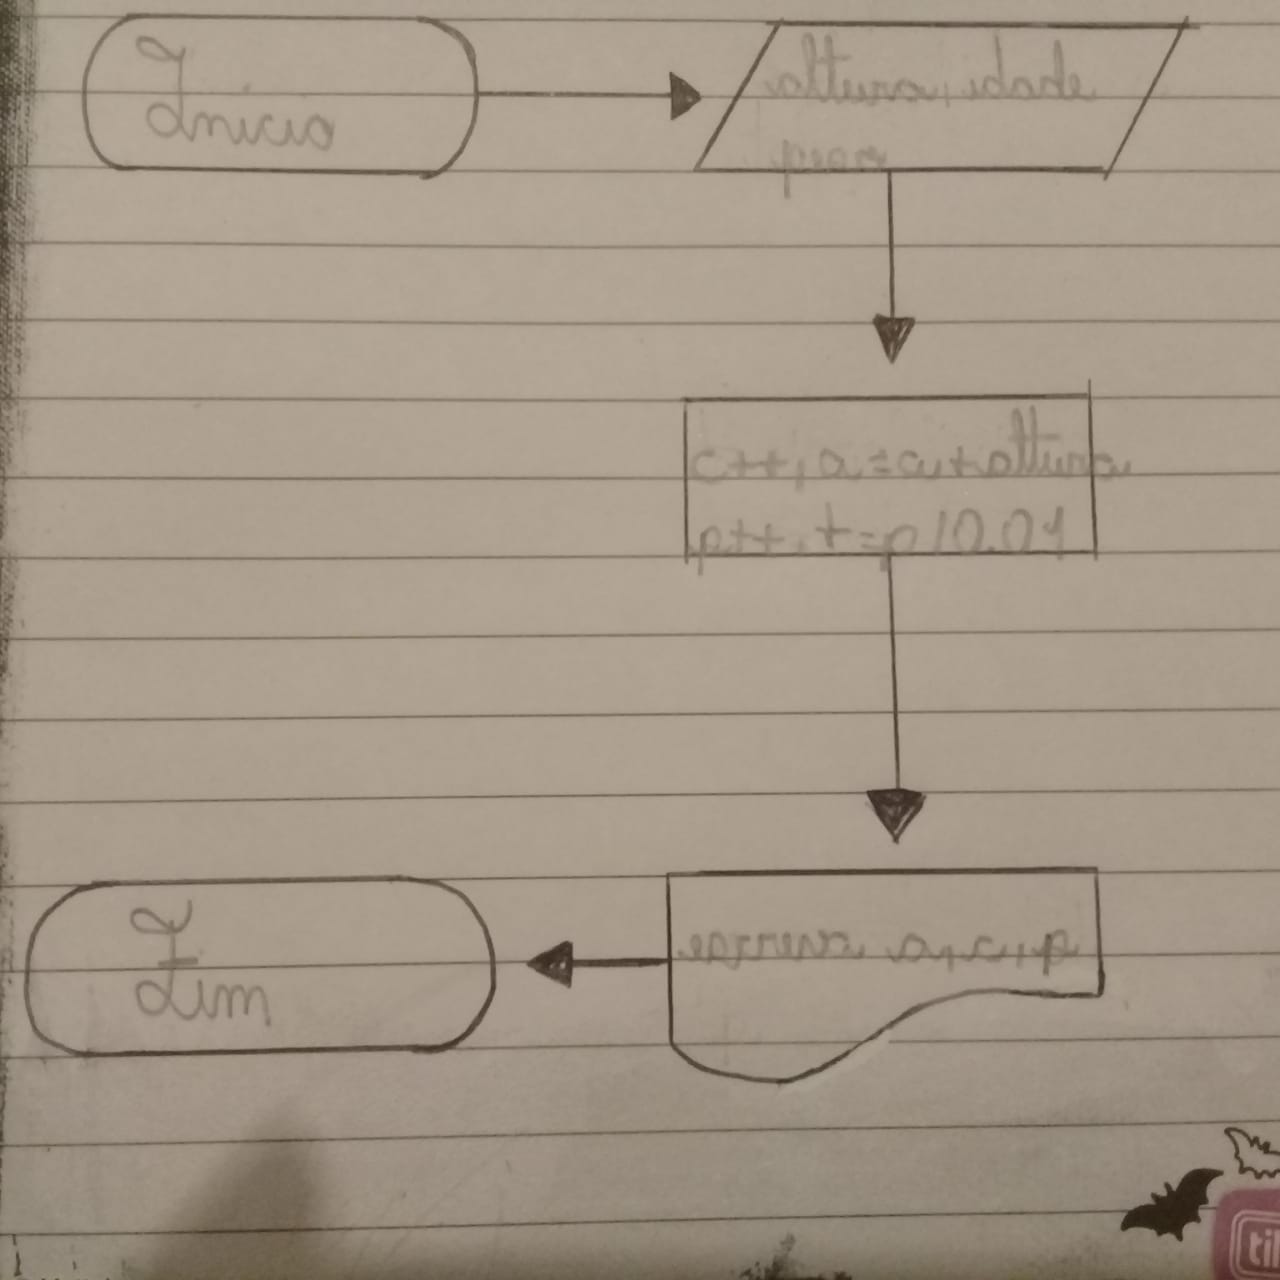 Início
altura, idade
peso
c++, a=a+altura
p++, t=p/0.01
escreva a, c, p
Fim